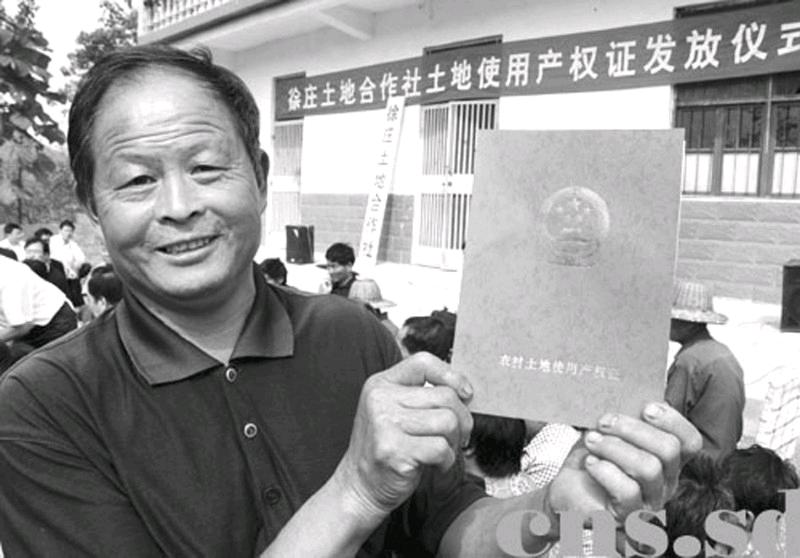 徐庄土地合作社土地使用产权证发放仪式
徐庄土地合作社
农村土地使用产权证
cns.sd